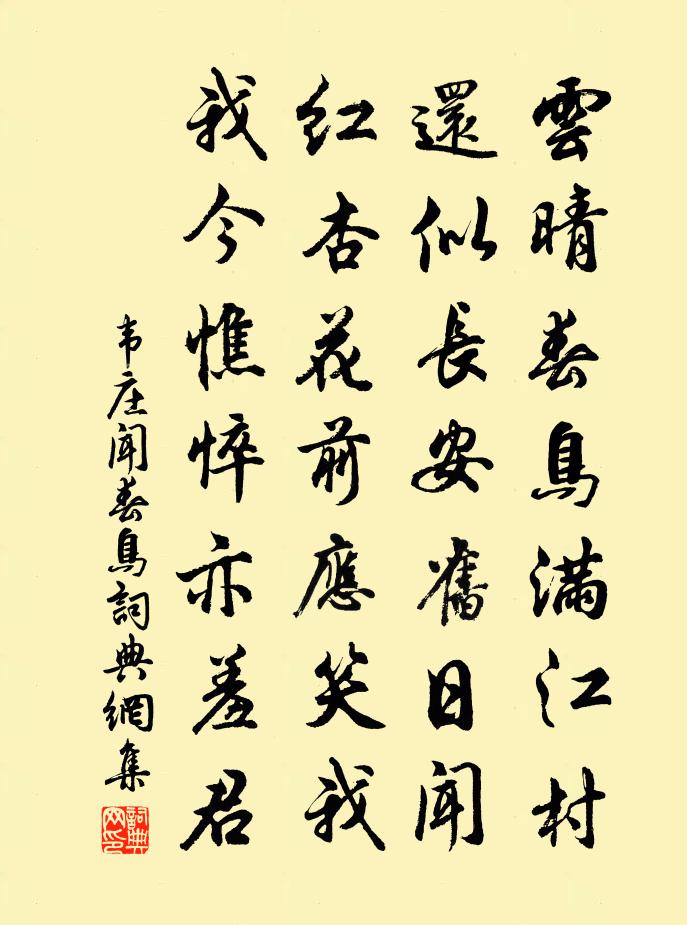 雲晴春鳥滿江村
還似長安舊日聞
紅杏花前應笑我
我今憔悴亦羞君
韦庄聞春鳥詞典網集
詞典网印